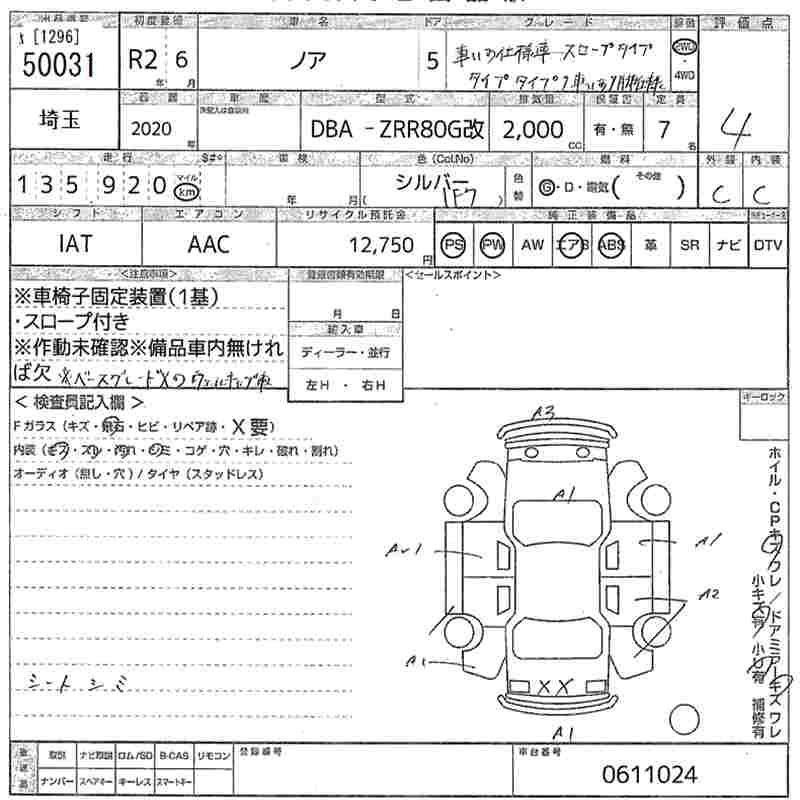 初度登録 車名 ドア グレード 評価点
[1296]
50031
R2 6
年 月
ノア
5
車いす仕様車 スロープタイプ
2WD
・
4WD
埼玉
2020
年
車歴
型式
DBA -ZRR80G改
排気量
2,000
CC
保証書
有・無
定員
7
名
4
走行
135920
マイル
km
車検
年 月
色(Col.No)
シルバー
1F7
色替
燃料
G・D・電気( その他 )
外装 内装
C C
シフト
IAT
エアコン
AAC
リサイクル預託金
12,750
円
純正装備品
PS PW AW エアB ABS 革 SR ナビ DTV
<注意事項>
※車椅子固定装置(1基)
・スロープ付き
※作動未確認※備品車内無けれ
ば欠 ※ベースグレードXのウェルキャブ車
登録書類有効期限
月 日
輸入車
ディーラー・並行
左H ・ 右H
<セールスポイント>
キーロック
< 検査員記入欄 >
Fガラス (キズ・飛石・ヒビ・リペア跡・X要)
内装 (キズ・スレ・汚れ・シミ・コゲ・穴・キレ・破れ・割れ)
オーディオ (無し・穴) / タイヤ (スタッドレス)
シート シミ
A3
A1
A1
A2
A1
XX
A1
ホイル・CPキズワレ/ドアミラーキズワレ
小キズ有/小U有 補修有
欠品
取説 ナビ取説 ロム/SD B-CAS リモコン
ナンバー スペアキー キーレス スマートキー
登録番号
車台番号
0611024